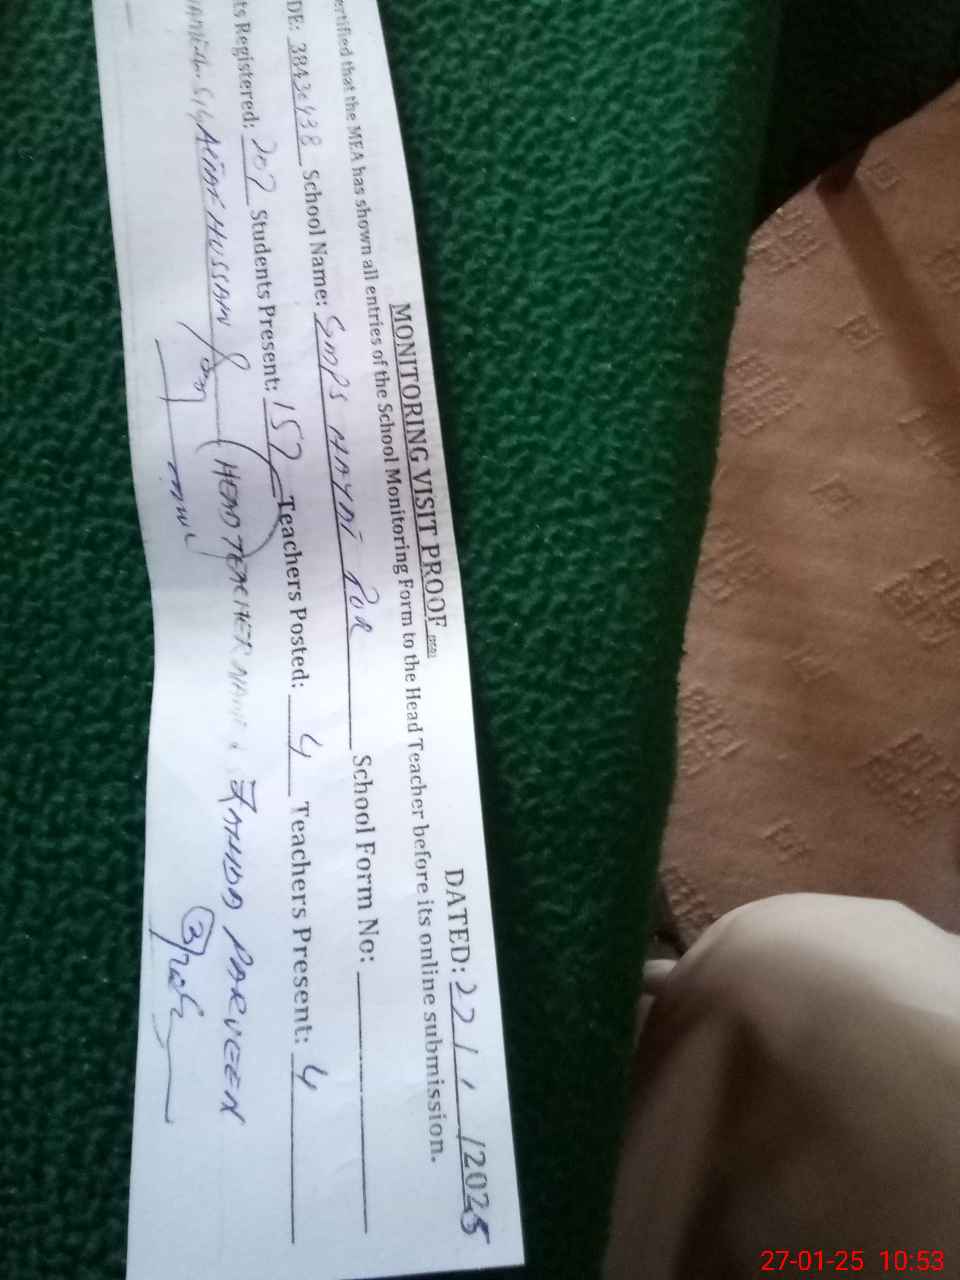 MONITORING VISIT PROOF
DATED: 27 / 1 /2025
ertified that the MEA has shown all entries of the School Monitoring Form to the Head Teacher before its online submission.
DE: 38430438 School Name: GMPS HAYDI POR School Form No:
ts Registered: 207 Students Present: 157 Teachers Posted: 4 Teachers Present: 4
HUSSAIN (HEAD TEACHER NAME & ZAHIDA PARVEEN
27-01-25 10:53